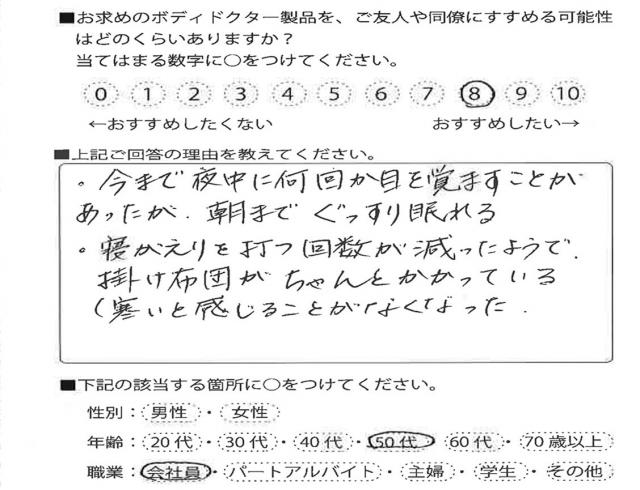 ■お求めのボディドクター製品を、ご友人や同僚にすすめる可能性
はどのくらいありますか？
当てはまる数字に○をつけてください。
0 1 2 3 4 5 6 7 8 9 10
←おすすめしたくない おすすめしたい→
■上記ご回答の理由を教えてください。
・今まで夜中に何回か目を覚ますことが
あったが、朝までぐっすり眠れる
・寝がえりを打つ回数が減ったようで、
掛け布団がちゃんとかかっている
(寒いと感じることがなくなった.
■下記の該当する箇所に○をつけてください。
性別：男性・女性
年齢：20代・30代・40代・50代・60代・70歳以上
職業：会社員・パートアルバイト・主婦・学生・その他